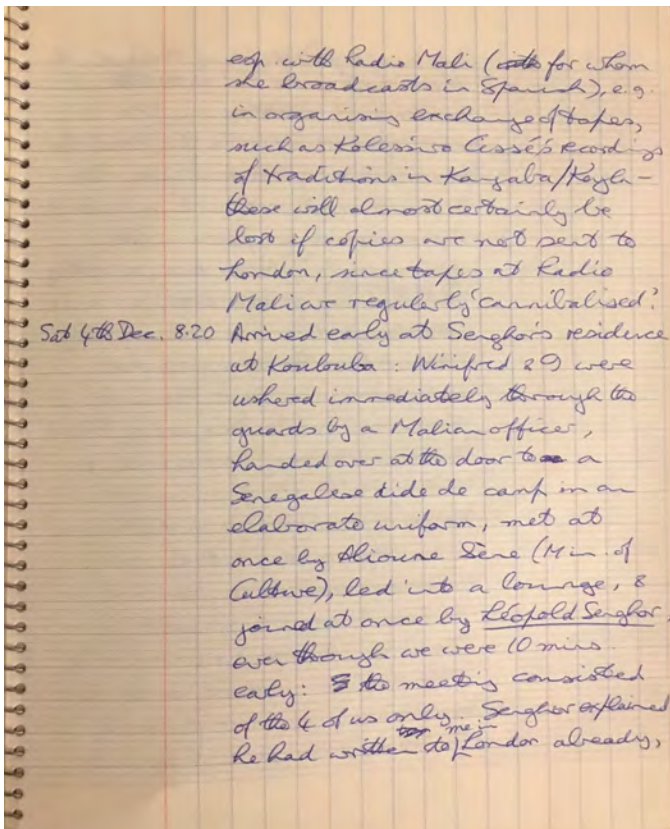 esp. with Radio Mali (for whom
she broadcasts in Spanish), e.g.
in organising exchange of tapes,
such as Cissé's recordings
of traditions in Kangaba/Keyla –
these will almost certainly be
lost if copies are not sent to
London, since tapes at Radio
Mali are regularly 'cannibalised'.
Sat 4th Dec. 8.20 Arrived early at Senghor's residence
at Koulouba : Winifred & I were
ushered immediately through the
guards by a Malian officer,
handed over at the door to a
Senegalese aide de camp in an
elaborate uniform, met at
once by Alioune Sène (Min. of
Culture), led into a lounge, &
joined at once by Léopold Senghor,
even though we were 10 mins
early: the meeting consisted
of the 4 of us only. Senghor explained
he had written to me in London already,